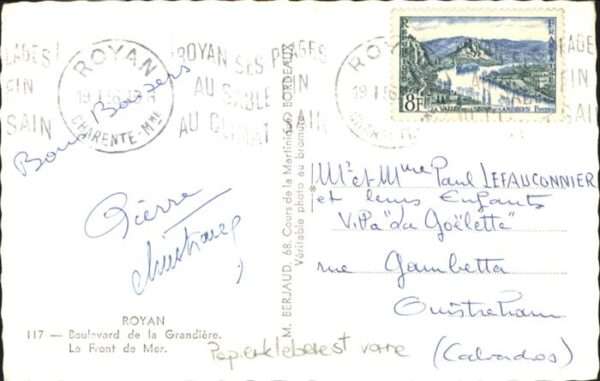 ROYAN
19-1-56
CHARENTE-Mme
ROYAN SES PLAGES
AU SABLE FIN
AU CLIMAT SAIN
LAGES
FIN
SAIN
REPUBLIQUE FRANÇAISE
8F
LA VALLÉE DE LA SEINE AUX ANDELYS
Bons Baisers
Pierre
Mr et Mme Paul LEFAUCONNIER
et leurs Enfants
Villa "La Goëlette"
rue Gambetta
Ouistreham
(Calvados)
M. BERJAUD, 68, Cours de la Martinique BORDEAUX
Véritable photo au bromure
ROYAN
117 — Boulevard de la Grandière.
Le Front de Mer.